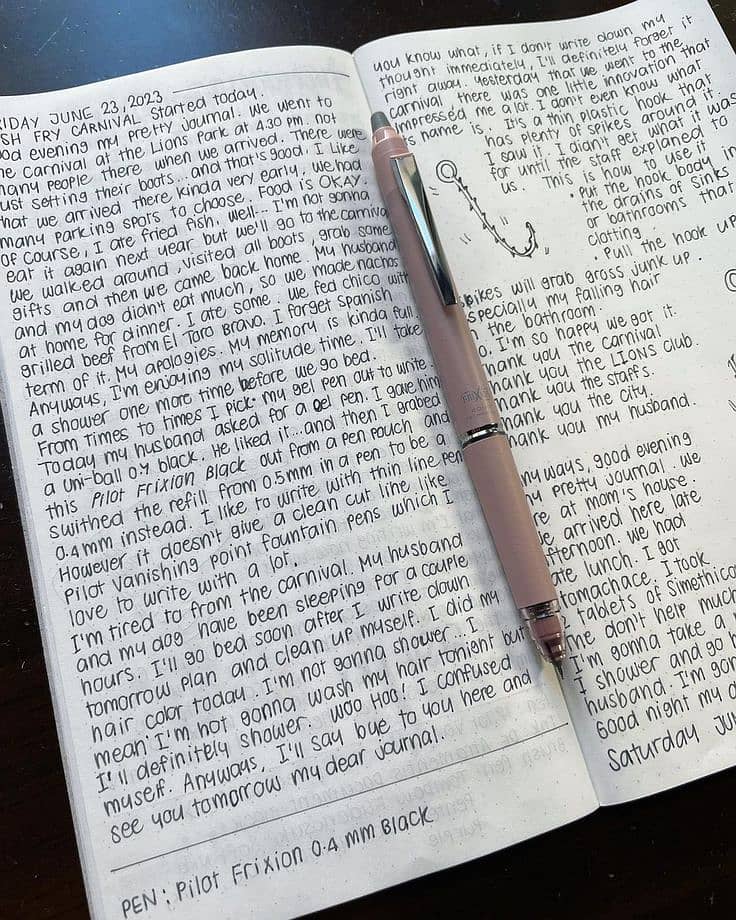 RIDAY JUNE 23, 2023
SH FRY CARNIVAL started today.
od evening my pretty journal. We went to
he Carnival at the Lions Park at 4:30 pm. not
many people there when we arrived. There were
ust setting their boots...and that's good. I like
that we arrived there kinda very early, we had
many parking spots to choose. Food is OKAY.
Of course, I ate fried fish. Well... I'm not gonna
eat it again next year but we'll go to the carnival
we walked around, visited all boots, grab some
gifts and then we came back home. My husband
and my dog didn't eat much, so we made nachos
at home for dinner. I ate some. We fed chico with
grilled beef from El Toro Bravo. I forget Spanish
term of it. My apologies. My memory is kinda full.
Anyways, I'm enjoying my solitude time. I'll take
a shower one more time before we go bed.
From times to times I pick my gel pen out to write.
Today my husband asked for a gel pen. I gave him
a uni-ball 0.7 black. He liked it...and then I grabed
this Pilot Frixion Black out from a pen pouch and
swithed the refill from 0.5 mm in a pen to be a
0.4 mm instead. I like to write with thin line pen
However it doesn't give a clean cut line like
Pilot Vanishing point fountain pens which I
love to write with a lot.
I'm tired to from the carnival. My husband
and my dog have been sleeping for a couple
hours. I'll go bed soon after I write down
tomorrow plan and clean up myself. I did my
hair color today. I'm not gonna shower...I
mean I'm not gonna wash my hair tonight but
I'll definitely shower. Woo Hoo! I confused
myself. Anyways, I'll say bye to you here and
see you tomorrow my dear journal.
PEN: Pilot Frixion 0.4 mm Black
you know what, if I don't write down my
thought immediately, I'll definitely forget it
right away. Yesterday that we went to the
carnival there was one little innovation that
impressed me a lot. I don't even know what
s name is. It's a thin plastic hook that
has plenty of spikes around it.
I saw it, I didn't get what it was
for until the staff explained to
us. This is how to use it
• Put the hook body in
the drains of sinks
or bathrooms that
clotting.
• Pull the hook up
spikes will grab gross junk up.
specially my falling hair
the bathroom.
o. I'm so happy we got it.
hank you the carnival
hank you the LIONS club.
hank you the staffs.
hank you the city.
hank you my husband.
nyways, good evening
y pretty journal. We
re at mom's house.
e arrived here late
fternoon. We had
ate lunch. I got
tomachace. I took
tablets of Simethico
me don't help much
I'm gonna take a
I shower and go h
husband. I'm gon
Good night my d
Saturday JU